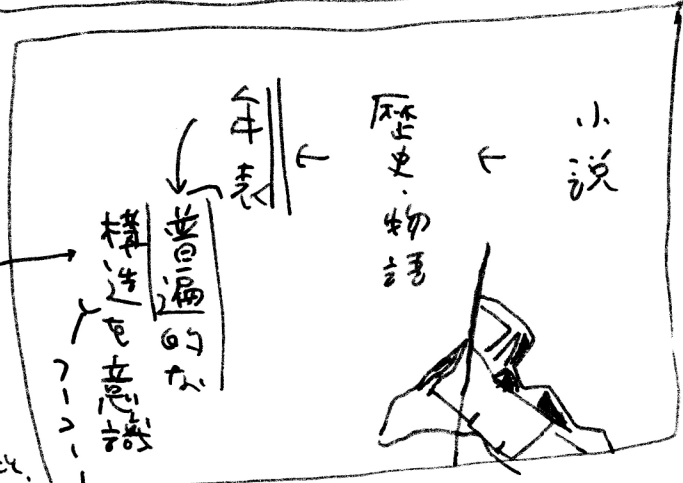 小説
←
歴史・物語
←
年表
普遍的な
構造を意識